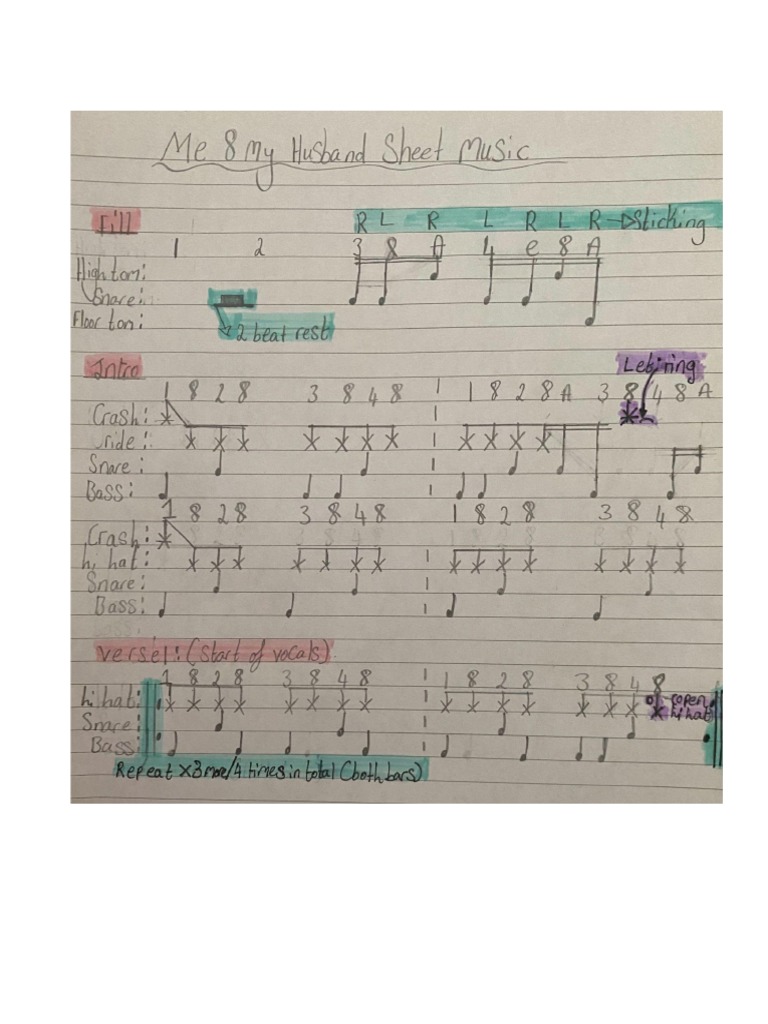 Me & My Husband Sheet Music
R L R L R L R → Sticking
Fill
1 2 3 & A 4 e & A
High tom:
Snare:
Floor tom:
2 beat rest
Intro
Let ring
1 & 2 & 3 & 4 & 1 & 2 & A 3 & 4 & A
Crash:
ride:
Snare:
Bass:
1 & 2 & 3 & 4 & 1 & 2 & 3 & 4 &
Crash:
hi hat:
Snare:
Bass:
Verse 1: (Start of vocals)
1 & 2 & 3 & 4 & 1 & 2 & 3 & 4 &
hi hat:
o (open hi hat)
Snare:
Bass:
Repeat x3 more/4 times in total (both bars)